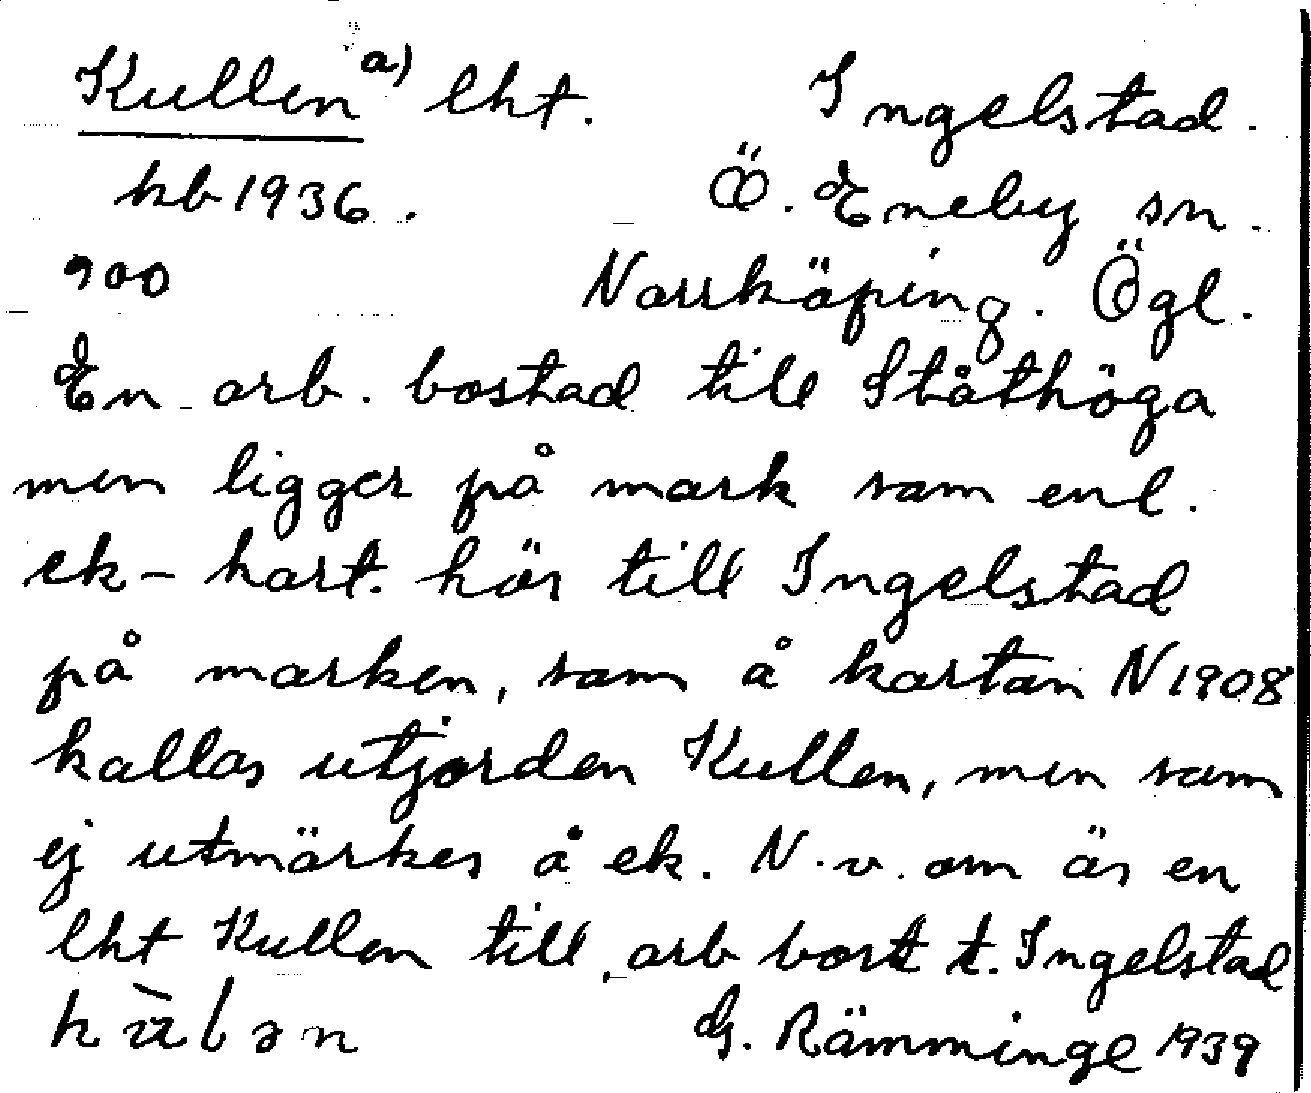 Kullen a) lht. Ingelstad.
kb 1936. Ö. Eneby sn.
900 Norrköping. Ögl.
En arb. bostad till Ståthöga
men ligger på mark som enl.
ek-kart. hör till Ingelstad
på marken, som å kartan N 1908
kallas utjorden Kullen, men som
ej utmärkes å ek. N.v. om är en
lht Kullen till, arb bost t. Ingelstad
G. Rämminge 1939